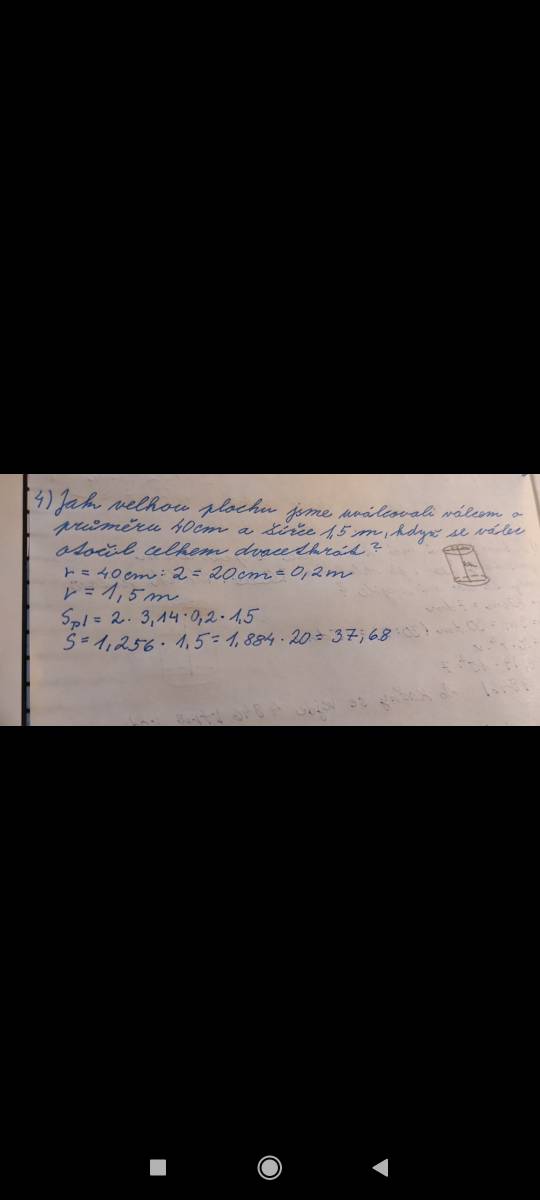 4) Jak velkou plochu jsme uválcovali válcem o
průměru 40cm a šíře 1,5 m, když se válec
otočil celkem dvacetkrát?
r = 40cm : 2 = 20cm = 0,2m
v = 1,5 m
Spl = 2 · 3,14 · 0,2 · 1,5
S = 1,256 · 1,5 = 1,884 · 20 = 37,68